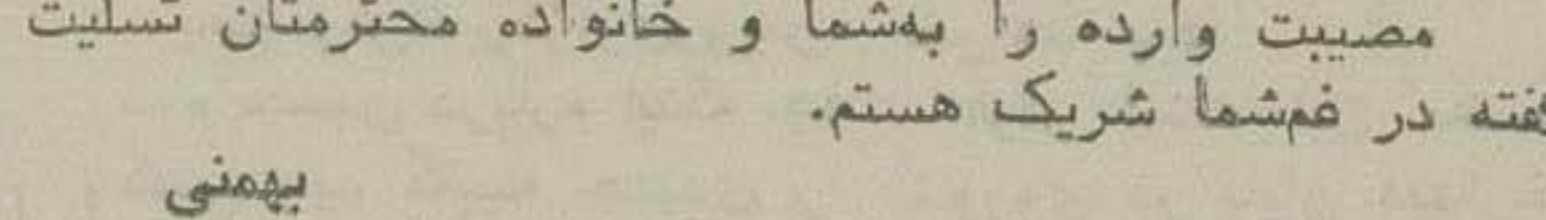 مصیبت وارده را به‌شما و خانواده محترمتان تسلیت
گفته در غم‌شما شریک هستم.
بهمنی